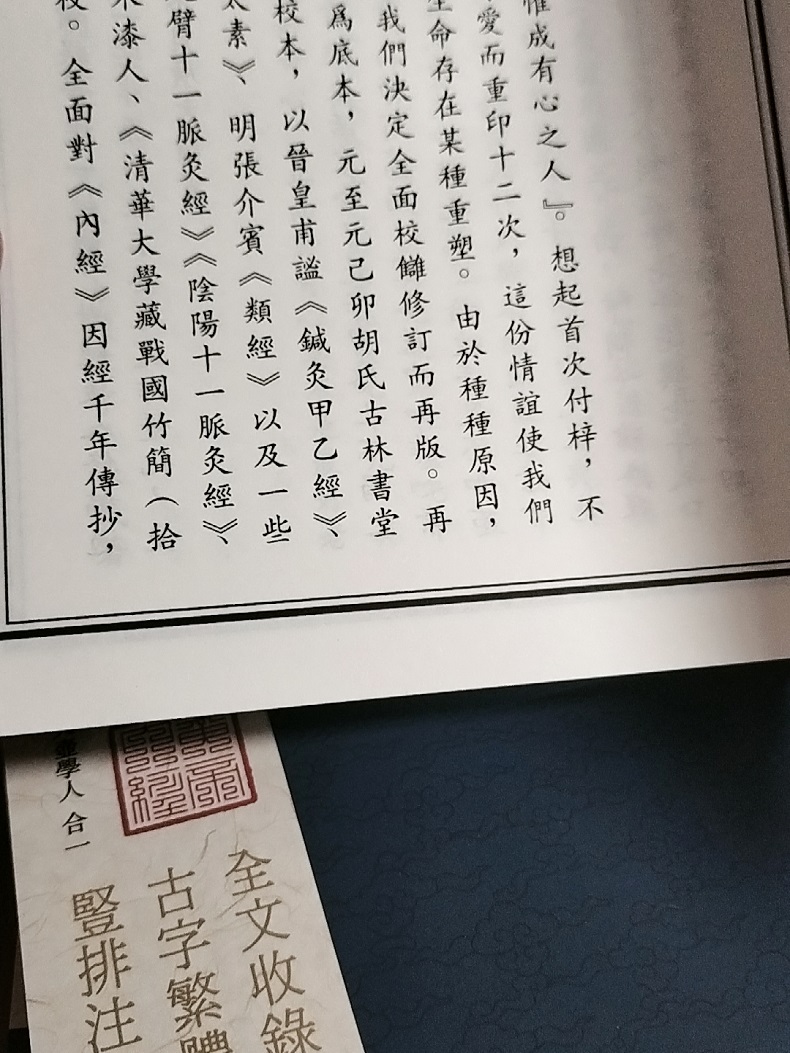 惟成有心之人』。想起首次付梓，不
愛而重印十二次，這份情誼使我們
生命存在某種重塑。由於種種原因，
我們決定全面校雠修訂而再版。再
爲底本，元至元己卯胡氏古林書堂
校本，以晉皇甫謐《鍼灸甲乙經》、
太素》、明張介賓《類經》以及一些
臂十一脈灸經》《陰陽十一脈灸經》、
漆人、《清華大學藏戰國竹簡（拾
校。全面對《內經》因經千年傳抄，
壺學人 合一
全文收錄
古字繁體
豎排注